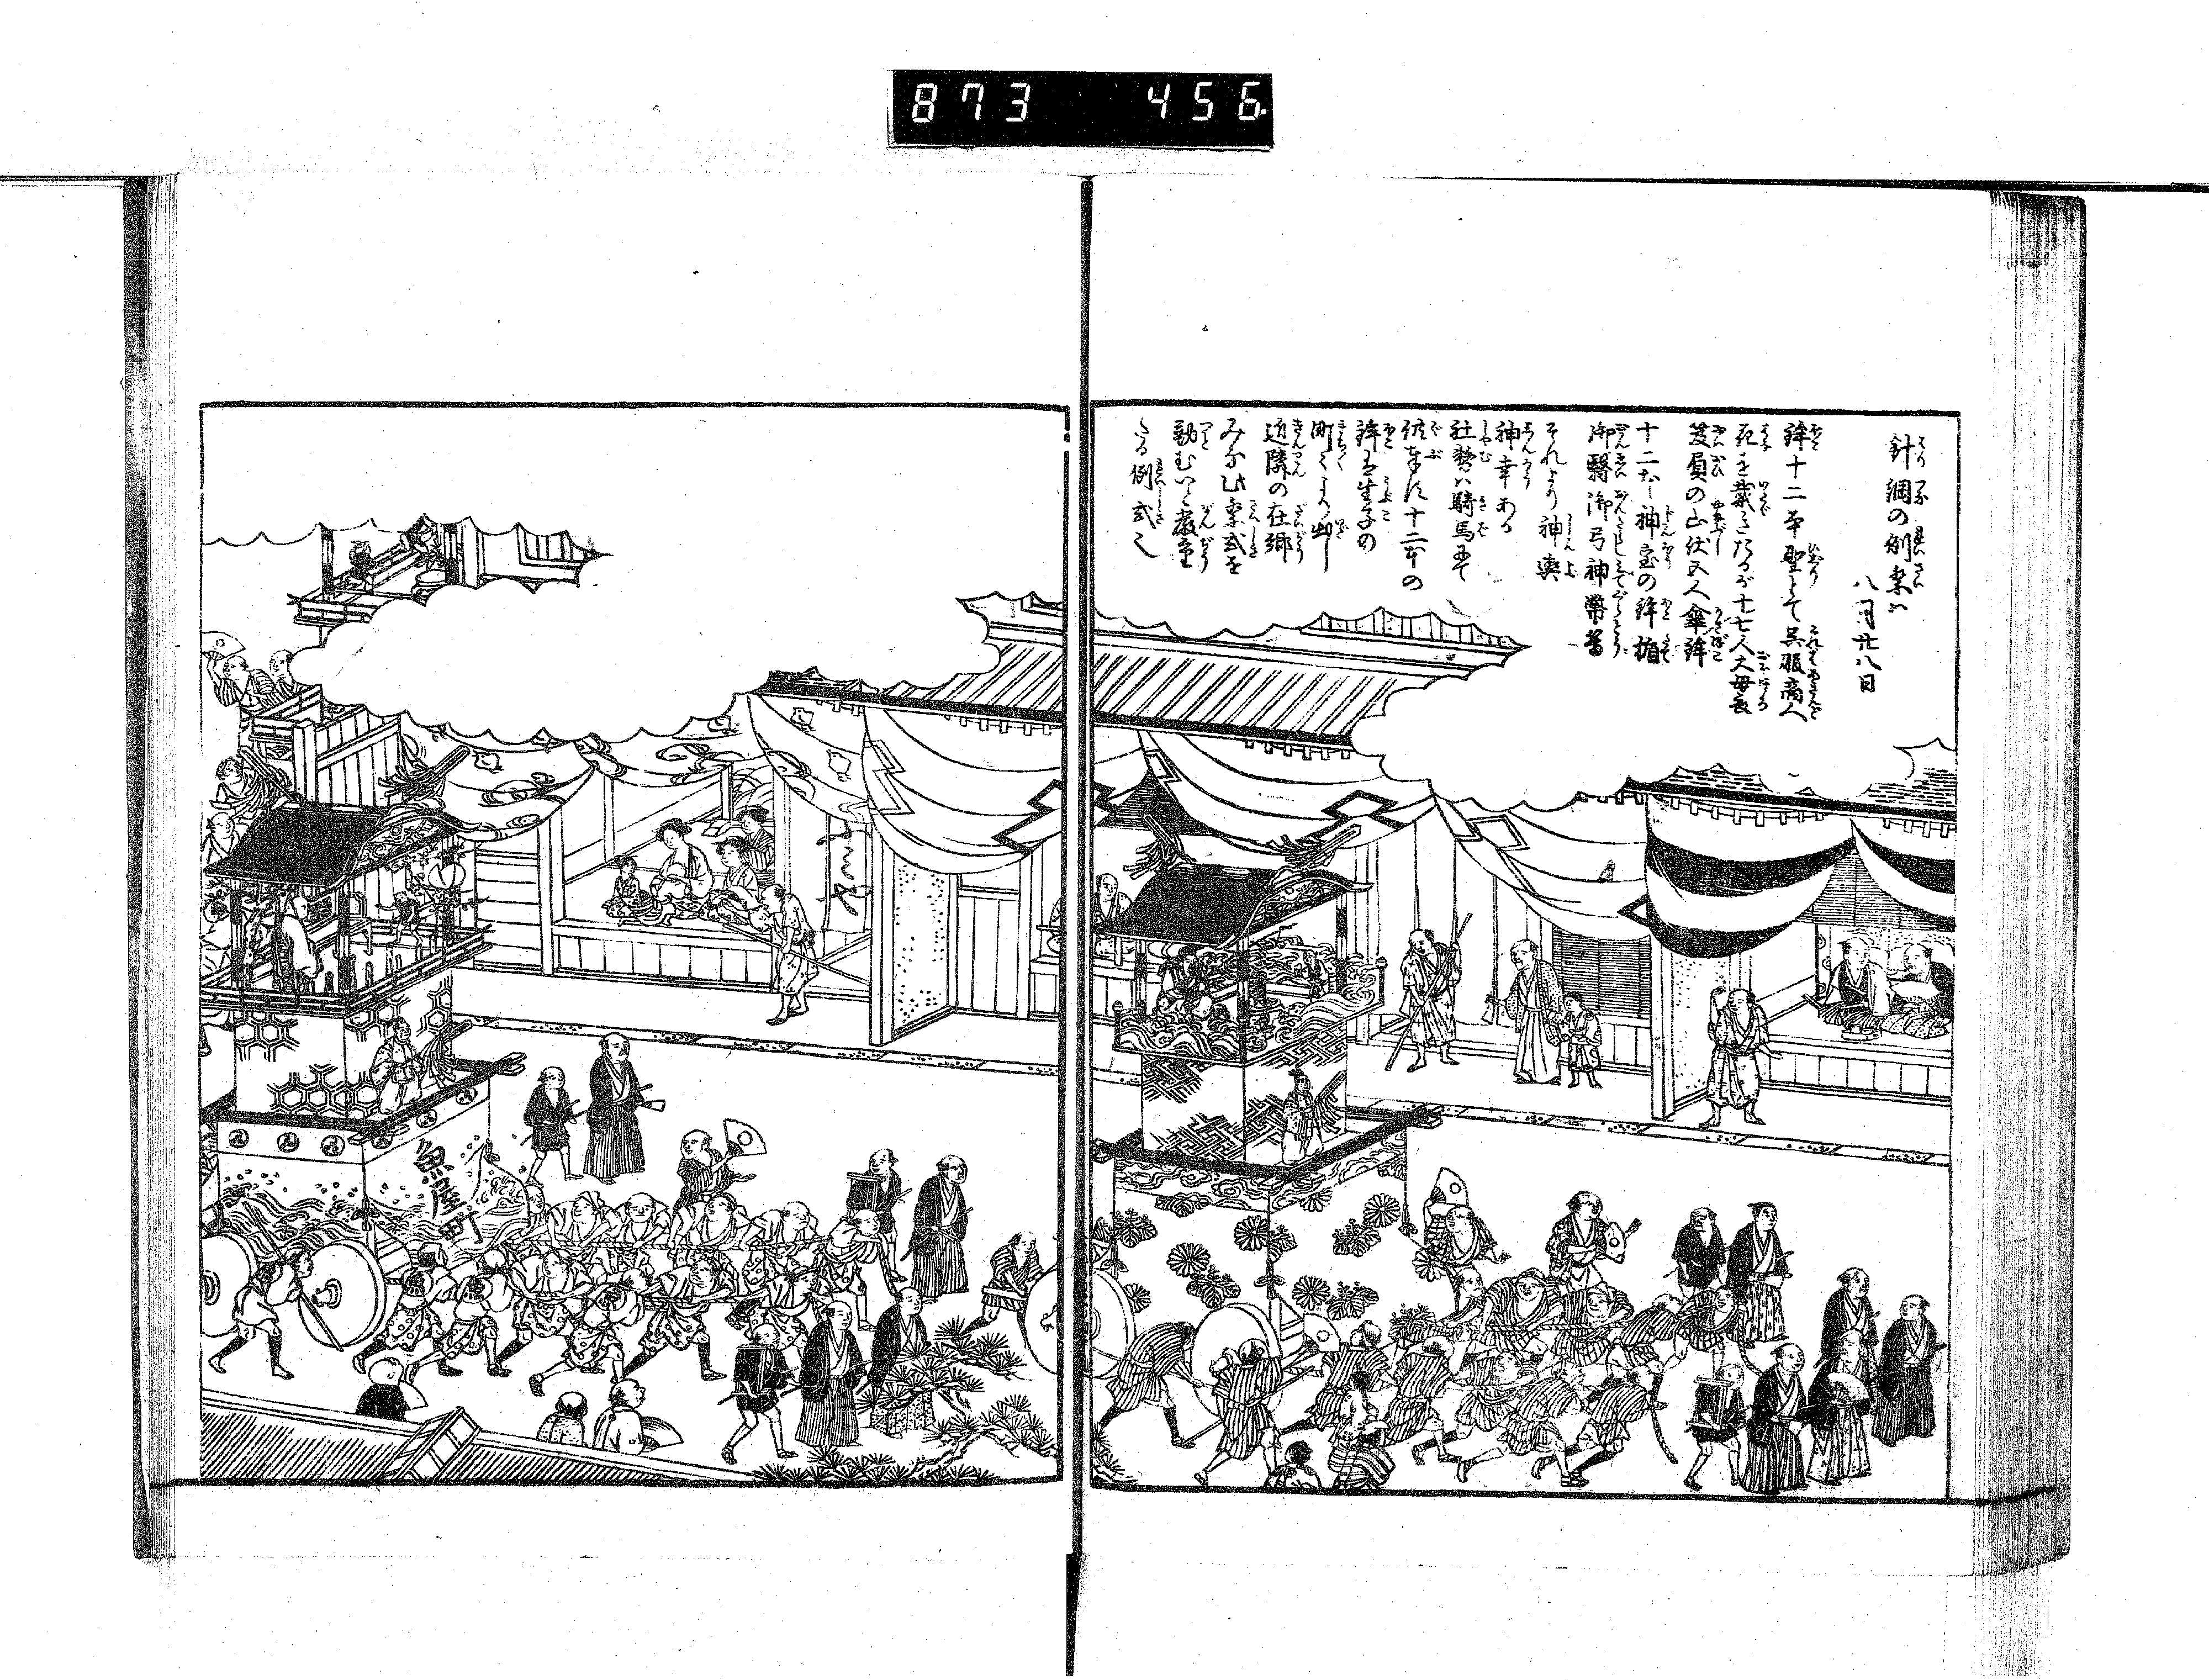 873 456
針綱の例祭は
八月廿八日
鉾十二本聖とて呉服商人
花を戴きたるが十七人大母衣
笈負の山伏五人傘鉾
十二本神宝の鉾楯
御翳御弓神幣等
それより神輿
神幸ある
社務ハ騎馬にて
供奉す十二本の
鉾は生子の
町〻より出し
近隣の在郷
みな此祭式を
勤むいと厳重
たる例式也
魚屋町